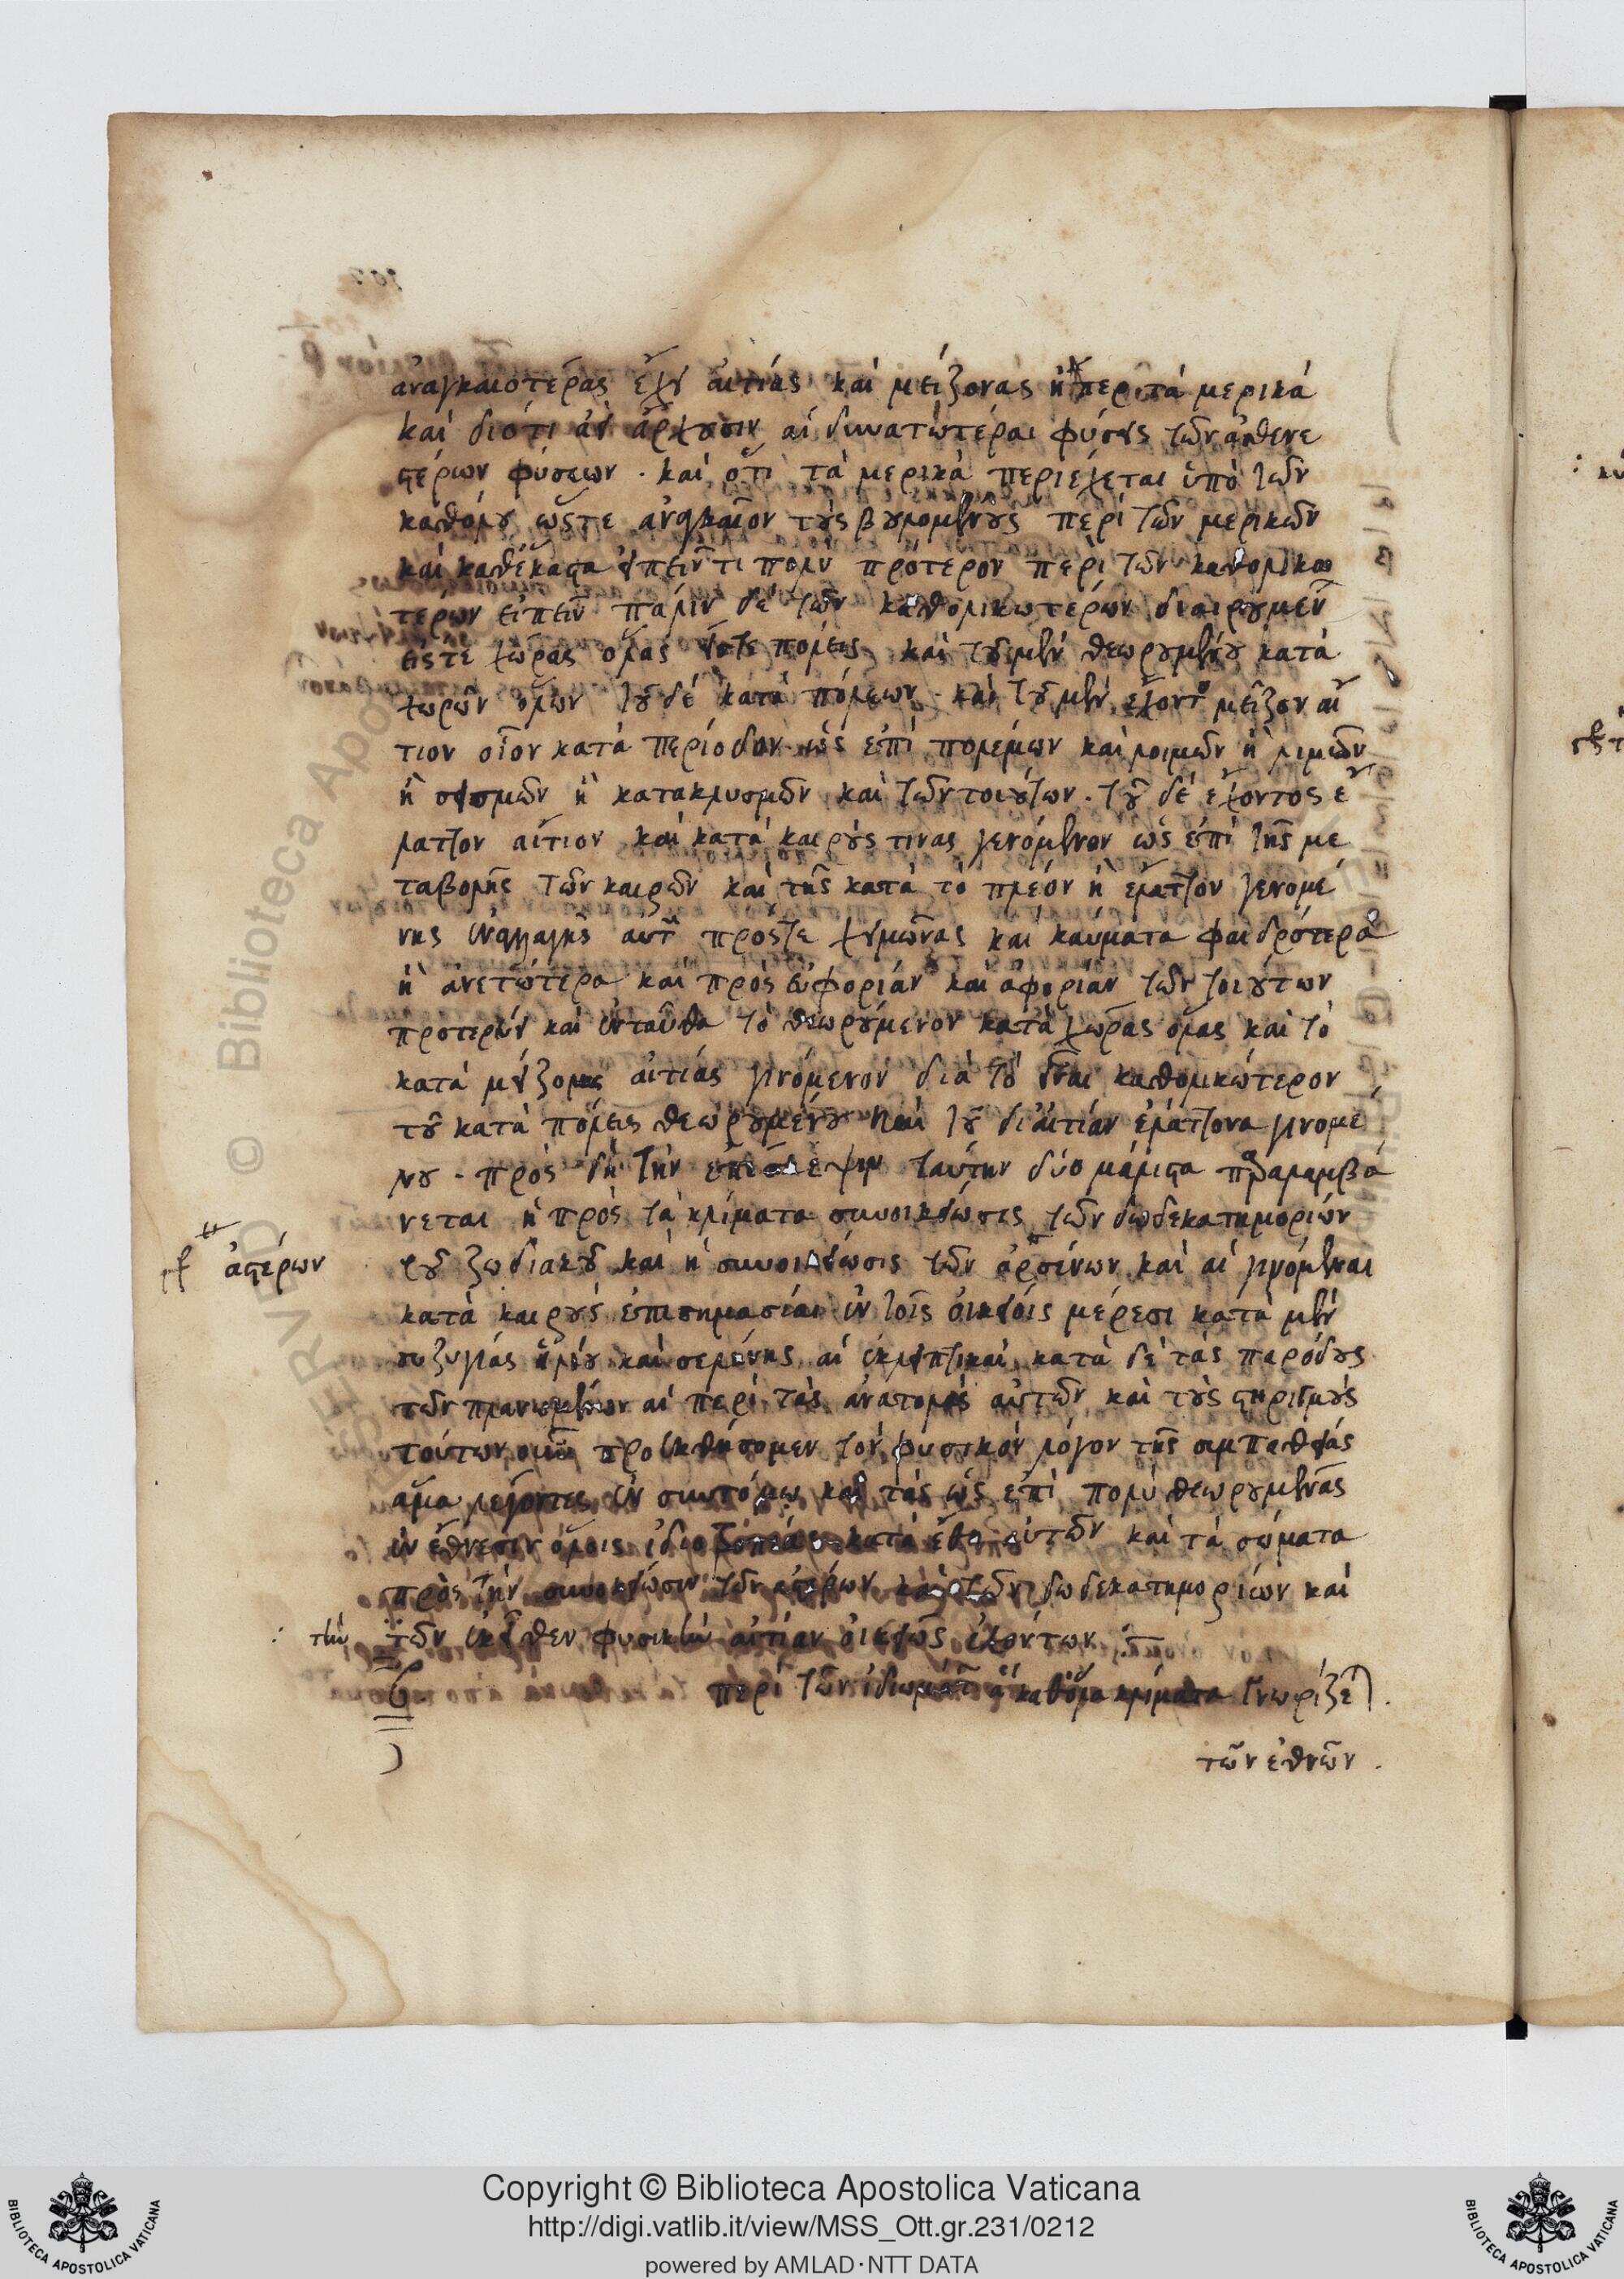 ἀναγκαιοτέρας ἔχει αἰτίας καὶ μείζονας ἤπερ τὰ μερικὰ
καὶ διότι ἀεὶ ἄρχουσιν αἱ δυνατώτεραι φύσεις τῶν ἀσθενε
στέρων φύσεων · καὶ ὅτι τὰ μερικὰ περιέχεται ὑπὸ τῶν
καθόλου ὥστε ἀναγκαῖον τοὺς βουλομένους περὶ τῶν μερικῶν
καὶ καθέκαστα εἰπεῖν τι πολὺ πρότερον περὶ τῶν καθολικω
τέρων εἰπεῖν πάλιν δὲ τῶν καθολικωτέρων διαιρουμέν
εἴς τε χώρας ὅλας πόλεις καὶ τοῦ μὲν θεωρουμένου κατὰ
χωρῶν ὅλων τοῦ δὲ κατὰ πόλεων · καὶ τοῦ μὲν ἔχοντο μεῖζον αἴ
τιον οἷον κατὰ περίοδον ὡς ἐπὶ πολέμων καὶ λοιμῶν ἢ λιμῶν
ἢ σεισμῶν ἢ κατακλυσμῶν καὶ τῶν τοιούτων · τοῦ δὲ ἔχοντος ἔ
λαττον αἴτιον καὶ κατὰ καιρούς τινας γενόμενον ὡς ἐπὶ τῆς με
ταβολῆς τῶν καιρῶν καὶ τῆς κατὰ τὸ πλέον ἢ ἔλαττον γενομέ
νης ἐναλλαγῆς αὐτ πρός τε χειμῶνας καὶ καύματα φαιδρότερα
ἢ ἀνετώτερα καὶ πρὸς εὐφορίαν καὶ ἀφορίαν τῶν τοιούτων
προτερεῖν καὶ ἐνταῦθα τὸ θεωρούμενον κατὰ χώρας ὅλας καὶ τὸ
κατὰ μείζονας αἰτίας γινόμενον διὰ τὸ εἶναι καθολικώτερον
τοῦ κατὰ πόλεις θεωρουμένου καὶ τοῦ δι' αἰτίαν ἐλάττονα γινομέ
νου · πρὸς δὴ τὴν ἐπίσκεψιν ταύτην δύο μάλιστα παραλαμβά
νεται ἡ πρὸς τὰ κλίματα συνοικείωσις τῶν δωδεκατημορίων
ἀστέρων τοῦ ζωδιακοῦ καὶ ἡ συνοικείωσις τῶν ἀρσένων καὶ αἱ γινόμεναι
κατὰ καιροὺς ἐπισημασίαι ἐν τοῖς οἰκείοις μέρεσι κατὰ μὲν
συζυγίας ἡλίου καὶ σελήνης αἱ ἐκλειπτικαὶ κατὰ δὲ τὰς παρόδους
τῶν πλανωμένων αἱ περὶ τὰς ἀνατολὰς αὐτῶν καὶ τοὺς στηριγμοὺς
τούτων προεκθήσομεν τὸν φυσικὸν λόγον τῆς συμπαθείας
ἅμα λέγοντες ἐν συντόμῳ καὶ τὰς ὡς ἐπὶ πολὺ θεωρουμένας
ἐν ἔθνεσιν ὅλοις ἰδιοτροπίας κατὰ ἔθη αὐτῶν καὶ τὰ σώματα
πρὸς τὴν συνοικείωσιν τῶν ἀστέρων καὶ τῶν δωδεκατημορίων καὶ
: τὴν τῶν ἐκεῖθεν φυσικὴν αἰτίαν οἰκείως ἐχόντων :
περὶ τῶν ἰδιωμάτ ἃ καθόλα κλίματα γνωρίζε .
τῶν ἐθνῶν .
Copyright © Biblioteca Apostolica Vaticana
http://digi.vatlib.it/view/MSS_Ott.gr.231/0212
powered by AMLAD·NTT DATA
BIBLIOTECA APOSTOLICA VATICANA
BIBLIOTECA APOSTOLICA VATICANA